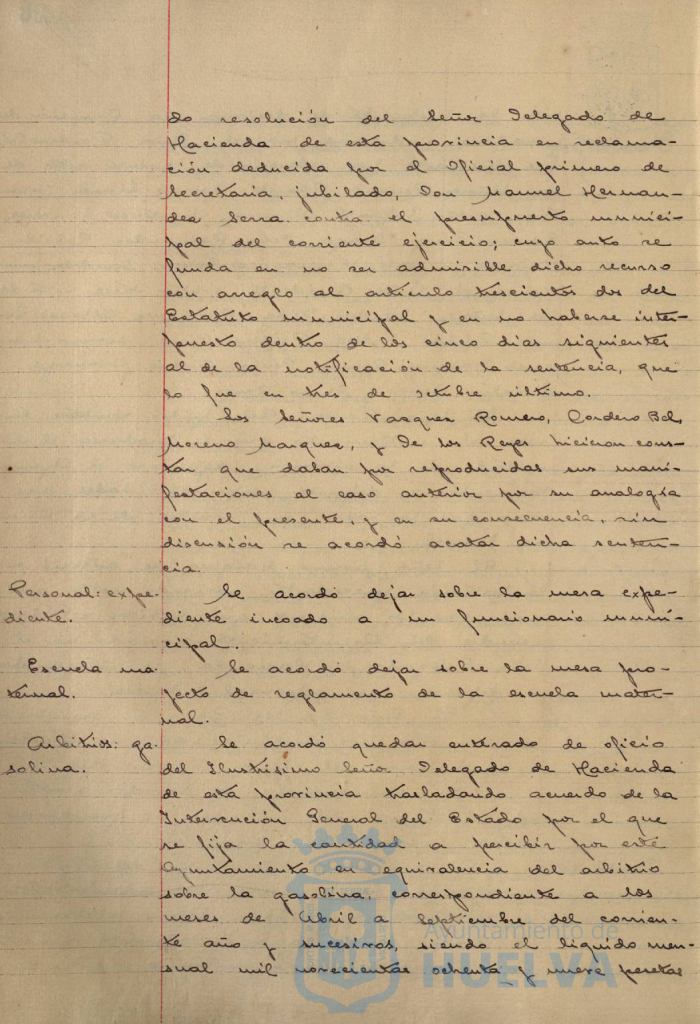 do resolución del Señor Delegado de
Hacienda de esta provincia en reclama-
ción deducida por el Oficial primero de
Secretaria, jubilado, Don Manuel Hernan-
dez Serra contra el presupuesto munici-
pal del corriente ejercicio; cuyo auto se
funda en no ser admisible dicho recurso
con arreglo al artículo trescientos dos del
Estatuto municipal y en no haberse inter-
puesto dentro de los cinco dias siguientes
al de la notificación de la sentencia, que
lo fue en tres de octubre último.
Los Señores Vazquez Romero, Cordero Bel,
Moreno Marquez, y De los Reyes hicieron cons-
tar que daban por reproducidas sus mani-
festaciones al caso anterior por su analogía
con el presente, y en su consecuencia, sin
discusión se acordó acatar dicha senten-
cia.
Personal: expe-
diente.
Se acordó dejar sobre la mesa expe-
diente incoado a un funcionario muni-
cipal.
Escuela ma-
ternal.
Se acordó dejar sobre la mesa pro-
yecto de reglamento de la escuela mater-
nal.
Arbitrios: ga-
solina.
Se acordó quedar enterado de oficio
del Ilustrisimo Señor Delegado de Hacienda
de esta provincia trasladando acuerdo de la
Intervención General del Estado por el que
se fija la cantidad a percibir por este
Ayuntamiento en equivalencia del arbitrio
sobre la gasolina, correspondiente a los
meses de Abril a Septiembre del corrien-
te año y sucesivos, siendo el liquido men-
sual mil novecientas ochenta y nueve pesetas
Ayuntamiento de
HUELVA